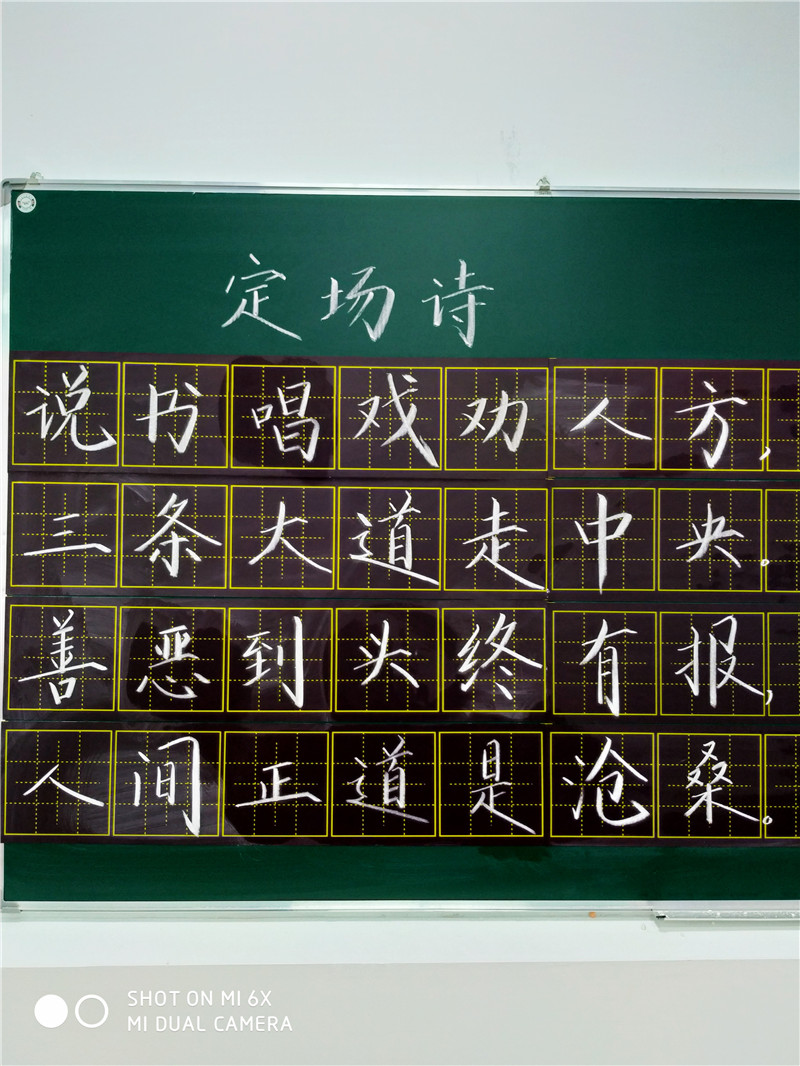 定场诗
说书唱戏劝人方,
三条大道走中央。
善恶到头终有报,
人间正道是沧桑。
SHOT ON MI 6X
MI DUAL CAMERA